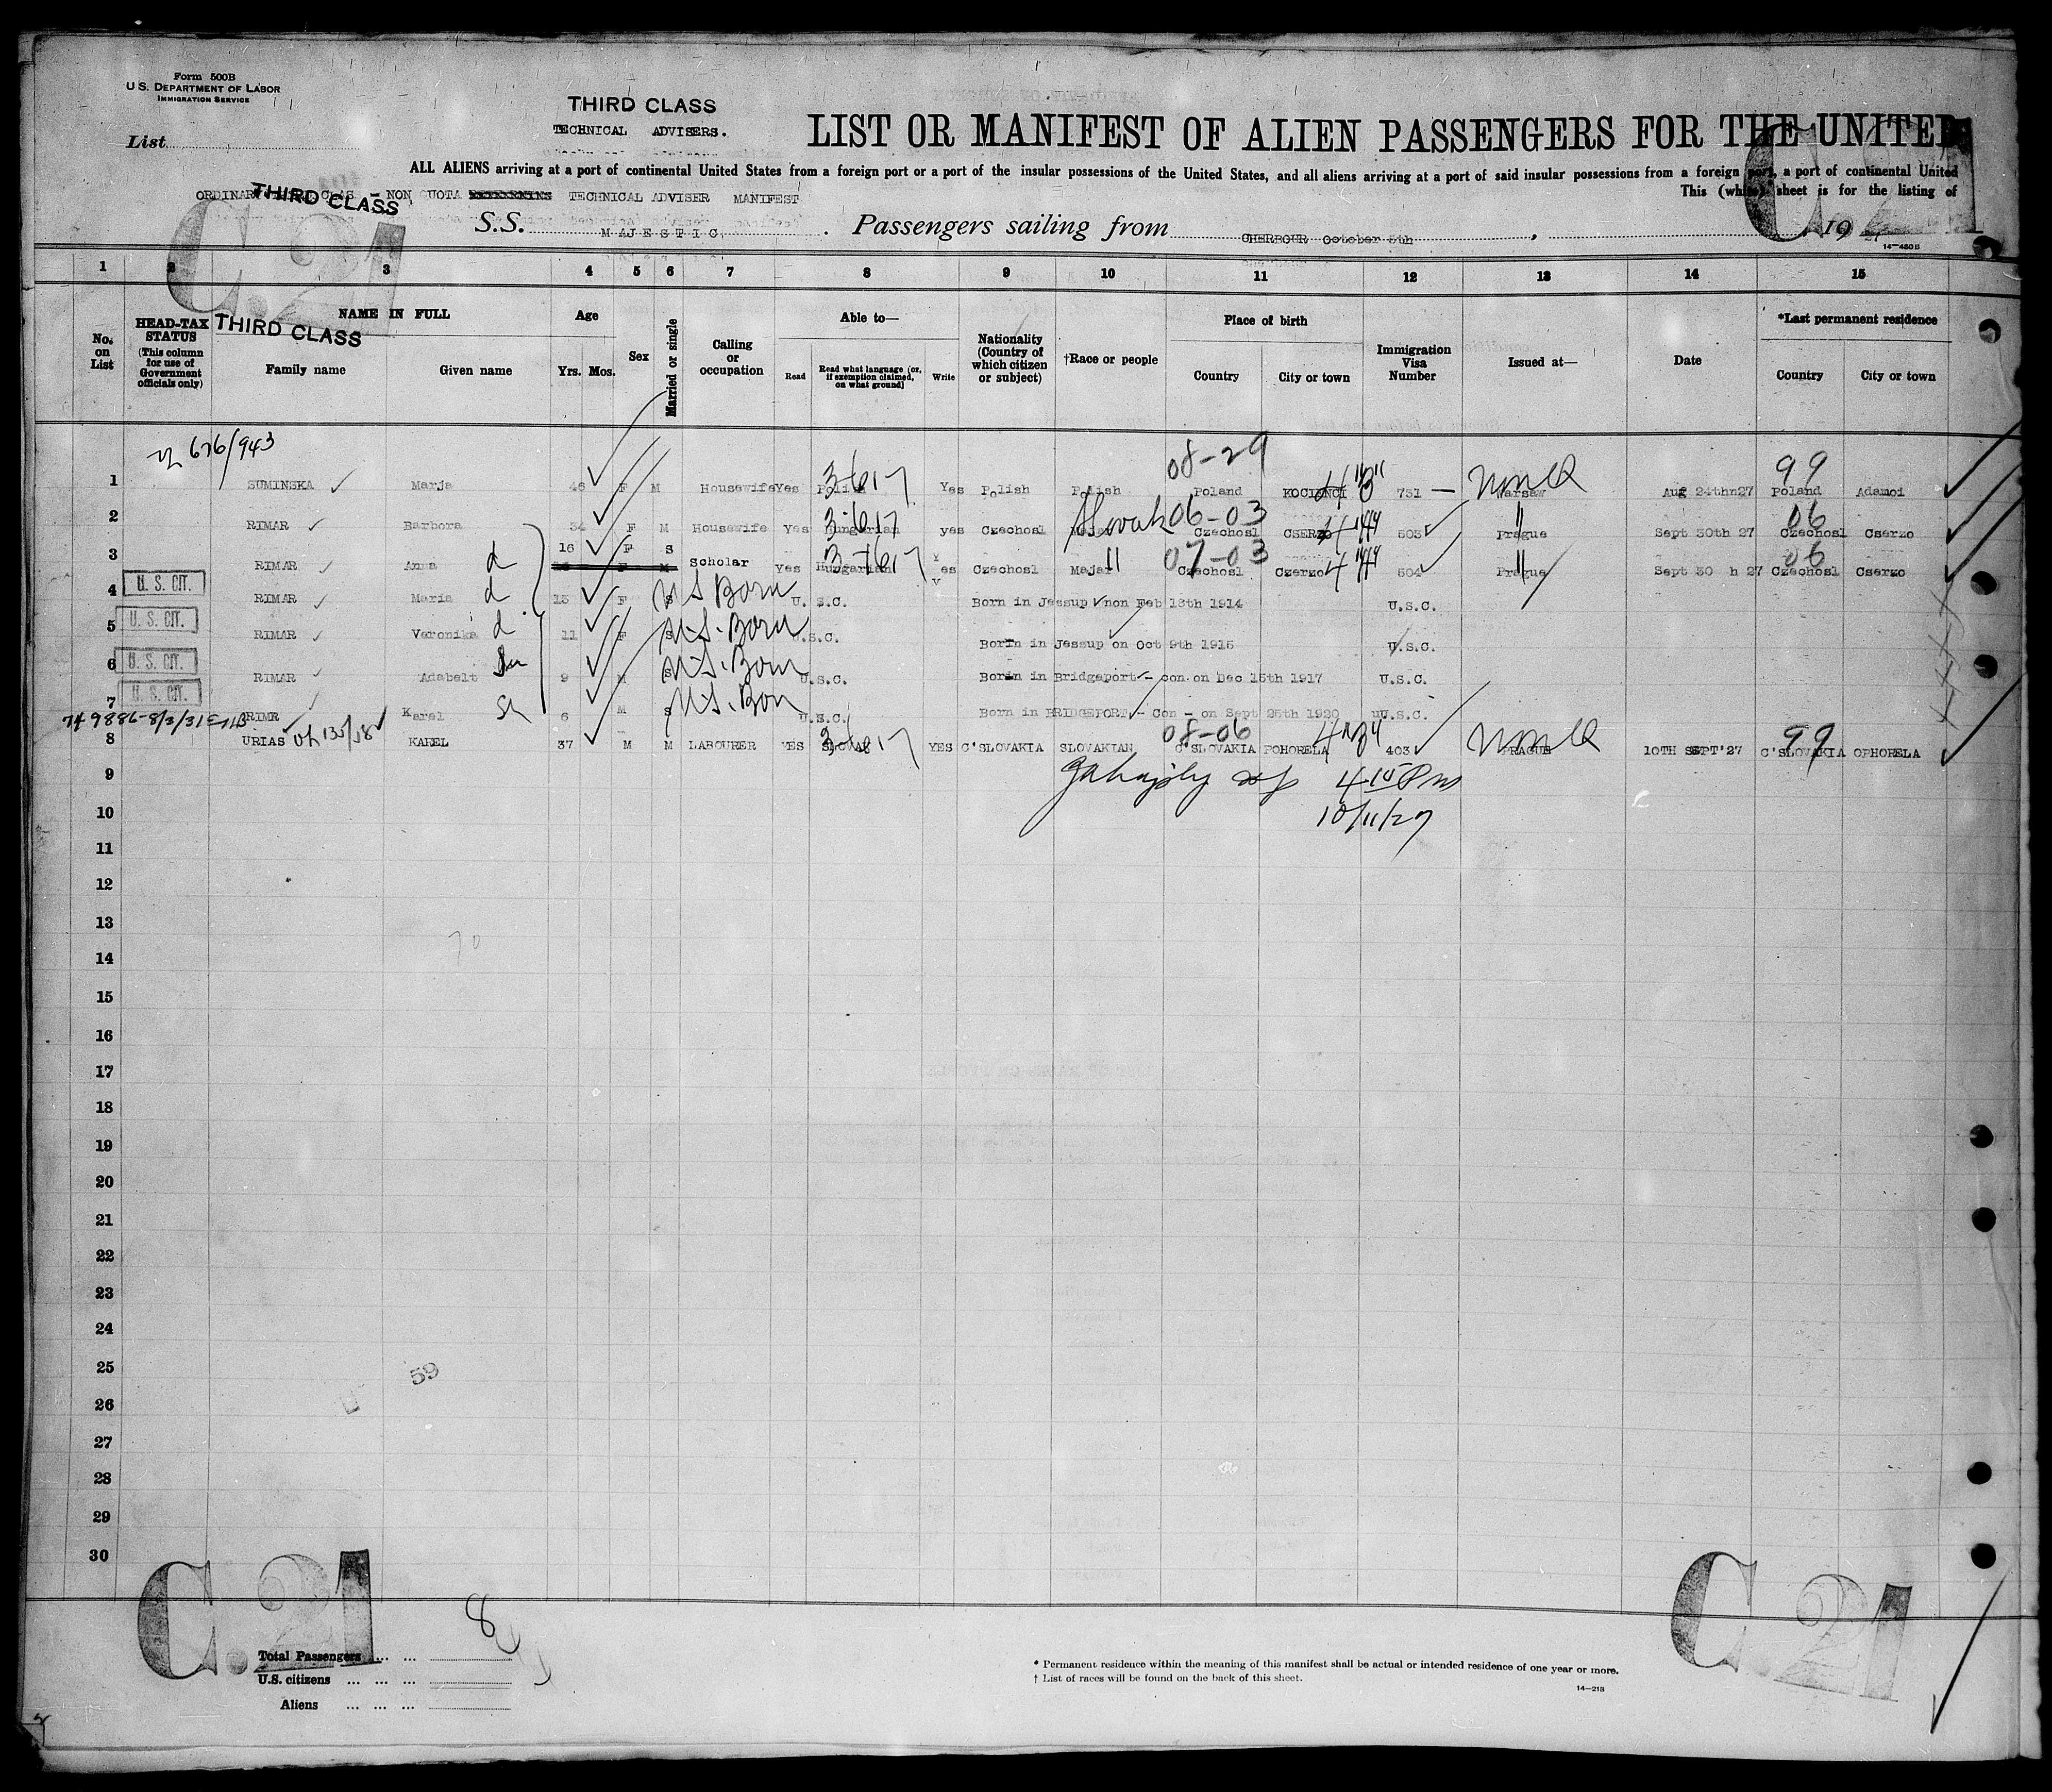 Form 500B
U.S. DEPARTMENT OF LABOR
IMMIGRATION SERVICE
List
THIRD CLASS
TECHNICAL ADVISERS.
LIST OR MANIFEST OF ALIEN PASSENGERS FOR THE UNITED
ALL ALIENS arriving at a port of continental United States from a foreign port or a port of the insular possessions of the United States, and all aliens arriving at a port of said insular possessions from a foreign port, a port of continental United
This (white) sheet is for the listing of
THIRD CLASS
NON QUOTA TECHNICAL ADVISER MANIFEST
C.21
C.21
S.S. MAJESTIC. Passengers sailing from CHERBOUR October 5th, 19
14—480B
1 2 3 4 5 6 7 8 9 10 11 12 13 14 15
No. on List
HEAD-TAX STATUS (This column for use of Government officials only)
THIRD CLASS
NAME IN FULL
Family name Given name
Age
Yrs. Mos.
Sex
Married or single
Calling or occupation
Able to—
Read
Read what language (or, if exemption claimed, on what ground)
Write
Nationality (Country of which citizen or subject)
†Race or people
Place of birth
Country City or town
Immigration Visa Number
Issued at—
Date
*Last permanent residence
Country City or town
676/943 08-29 99
1 SUMINSKA Marja 46 F M Housewife Yes Polish 3-6 17 Yes Polish Polish Poland 751 — Warsaw Aug 24th 27 Poland Adamoi
2 RIMAR Barbora 34 F M Housewife Yes Hungarian 3-6 17 yes Czechosl Slovak 06-03 Czechosl 503 Prague " Sept 30th 27 Czechosl 06 Cserzo
3 RIMAR Anna d 16 F S Scholar Yes Hungarian Yes Czechosl Majar " 07-03 Czechosl Czerzo 504 Prague " Sept 30 h 27 Czechosl 06 Cserzo
4 U. S. CIT. RIMAR Maria d 13 F S US Born U.S.C. Born in Jessup on Feb 18th 1914 U.S.C.
5 U. S. CIT. RIMAR Veronika d 11 F S U.S. Born U.S.C. Born in Jessup on Oct 9th 1915 U.S.C.
6 U. S. CIT. RIMAR Adabelt 9 M S U.S. Born U.S.C. Born in Bridgeport - con on Dec 15th 1917 U.S.C.
7 U. S. CIT. RIMR Karel 6 M S U.S. Born U.S.C. Born in BRIDGEPORT - Con - on Sept 25th 1920 U.S.C.
08-06
8 URIAS KAREL 37 M M LABOURER YES YES C'SLOVAKIA SLOVAKIAN C'SLOVAKIA POHORELA 403 PRAGUE 10TH SEPT'27 C'SLOVAKIA 99 OPHORELA
9
10 10/11/27
11
12
13
14
15
16
17
18
19
20
21
22
23
24
25
59
26
27
28
29
30
C.21
C.21
8
Total Passengers ... ...
U.S. citizens ... ... ...
Aliens ... ... ...
* Permanent residence within the meaning of this manifest shall be actual or intended residence of one year or more.
† List of races will be found on the back of this sheet.
14—213